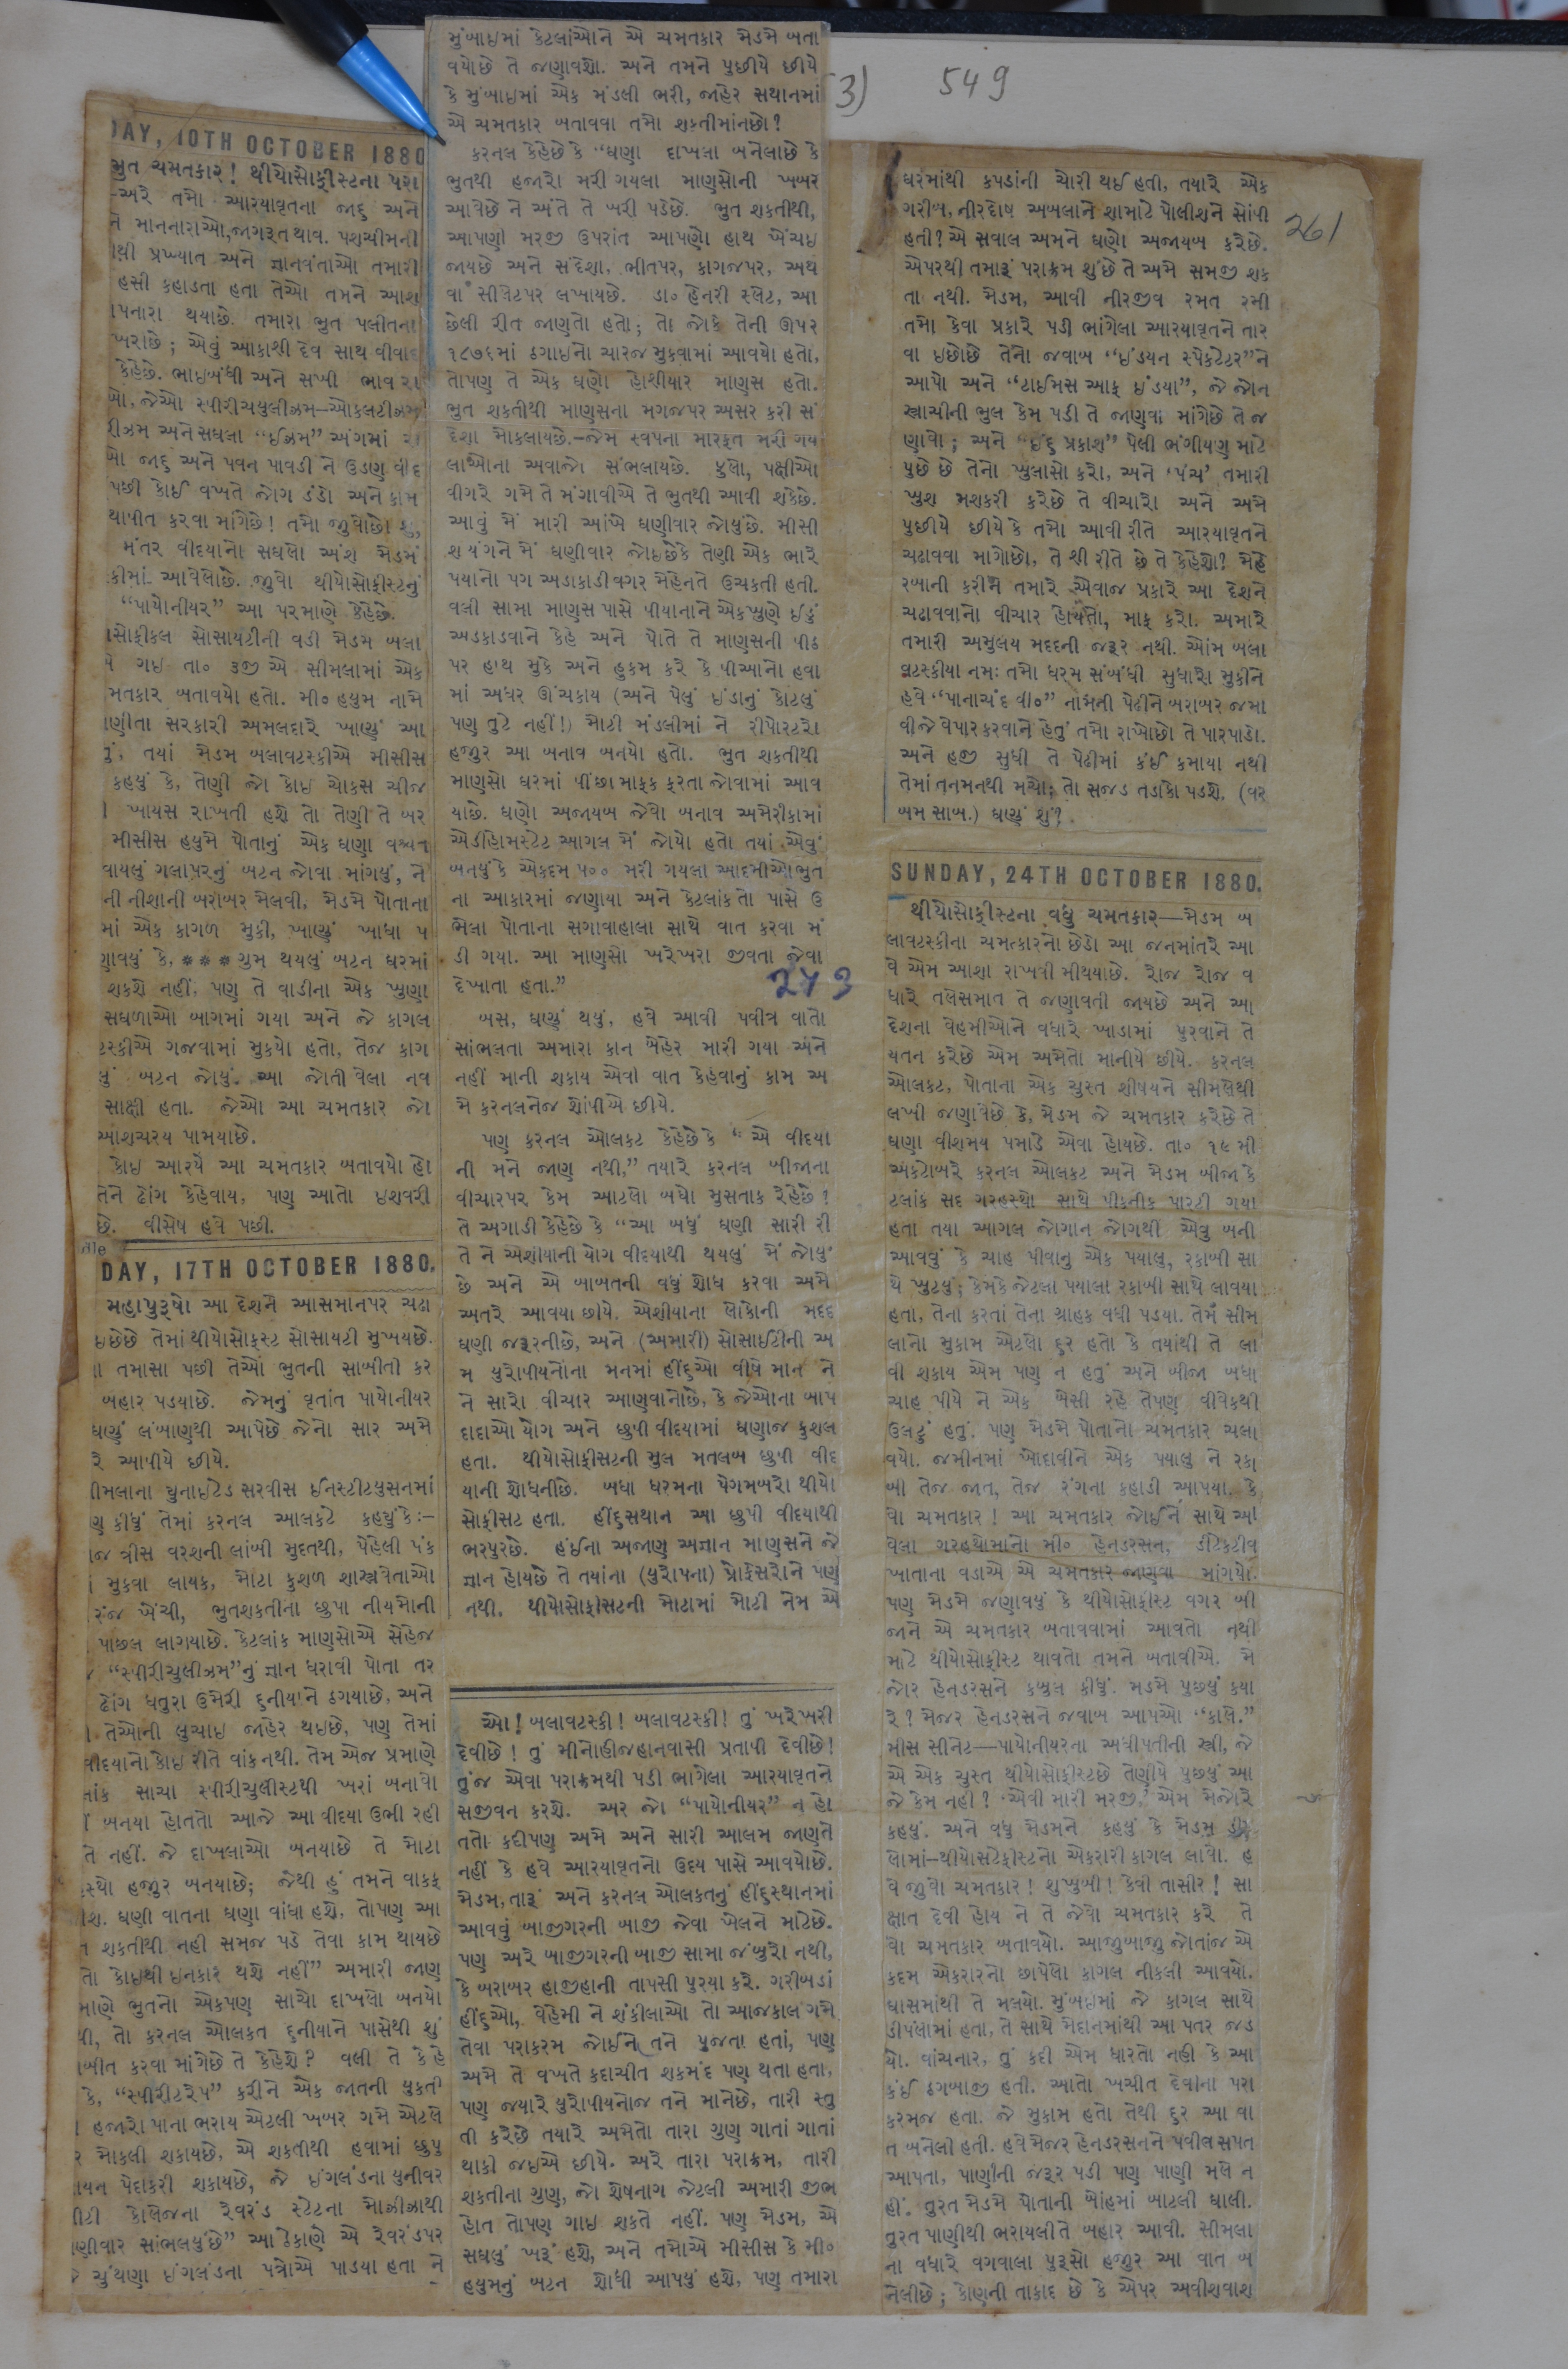 3) 549
261
DAY, 10TH OCTOBER 1880
ભુત ચમતકાર! થીયોસોફીસ્ટના પરા
-અરે તમો આરયાવૃતના જાદુ અને
ને માનનારાઓ, જાગરૂત થાવ. પશચીમની
થી પ્રખ્યાત અને જ્ઞાનવંતાઓ તમારી
હસી કહાડતા હતા તેઓ તમને આશ
પનારા થયાછે. તમારા ભુત પલીતના
ખરાછે; એવું આકાશી દેવ સાથ વીવાદ
કેહેછે. ભાઇબંધી અને સખી ભાવ
ઓ, જેઓ સ્પીરીચયુલીઝમ-ઓકલટીઝમ
રીઝમ અને સઘલા "ઈઝમ" અંગમાં
ઓ જાદુ અને પવન પાવડી ને ઉડણ વીદ
પછી કોઈ વખતે જોગ ડંડો અને કામ
થાપીત કરવા માંગેછે! તમો જુવોછો શું,
મંતર વીદયાનો સઘલો અંશ મેડમ
કીમાં આવેલોછે. જુવો થીયોસોફીસ્ટનું
"પાયોનીયર" આ પરમાણે કેહેછે.
સોફીકલ સોસાયટીની વડી મેડમ બલા
ગઇ તા૦ ૩જી એ સીમલામાં એક
મતકાર બતાવયો હતો. મી૦ હયુમ નામે
ણીતા સરકારી અમલદારે ખાણું આ
તું, તયાં મેડમ બલાવટસ્કીએ મીસીસ
કહયું કે, તેણી જો કોઇ ચોકસ ચીજ
ખાયસ રાખતી હશે તો તેણી તે બર
મીસીસ હયુમે પોતાનું એક ઘણા વખત
વાયલું ગલાપરનું બટન જોવા માંગયું, ને
ની નીશાની બરાબર મેલવી, મેડમે પોતાના
માં એક કાગળ મુકી, ખાણું ખાધા પ
ણાવયું કે, * * * ગુમ થયલું બટન ઘરમાં
શકશે નહીં, પણ તે વાડીના એક ખુણા
સઘળાઓ બાગમાં ગયા અને જે કાગલ
ટસ્કીએ ગજવામાં મુકયો હતો, તેજ કાગ
યું બટન જોયું. આ જોતી વેલા નવ
સાક્ષી હતા. જેઓ આ ચમતકાર જો
આશચરય પામયાછે.
કોઇ આરયે આ ચમતકાર બતાવયો હો
તેને ઢોંગ કેહેવાય, પણ આતો ઇશવરી
છે. વીસેષ હવે પછી.
DAY, 17TH OCTOBER 1880.
મહાપુરૂષો આ દેશને આસમાનપર ચઢા
ઇછેછે તેમાં થીયોસોફસ્ટ સોસાયટી મુખયછે.
તમાસા પછી તેઓ ભુતની સાબીતી કર
બહાર પડયાછે. જેમનું વૃતાંત પાયોનીયર
ઘણું લંબાણથી આપેછે જેનો સાર અમે
રે આપીયે છીયે.
ીમલાના યુનાઇટેડ સરવીસ ઈનસ્ટીટયુસનમાં
ણ કીધું તેમાં કરનલ આલકટે કહયું કે:-
જ ત્રીસ વરશની લાંબી મુદતથી, પેહેલી પંક
મુકવા લાયક, મોટા કુશળ શાસ્ત્રવેતાઓ
રંજ ખેંચી, ભુતશકતીના છુપા નીયમોની
પાછલ લાગયાછે. કેટલાંક માણસોએ સેહેજ
"સ્પીરીચુલીઝમ"નું જ્ઞાન ધરાવી પોતા તર
ઢોંગ ધતુરા ઉમેરી દુનીયાને ઠગયાછે, અને
તેઓની લુચાઇ જાહેર થઇછે, પણ તેમાં
વીદયાનો કોઇ રીતે વાંક નથી. તેમ એજ પ્રમાણે
લાંક સાચા સ્પીરીચુલીસ્ટથી ખરાં બનાવો
બનયા હોતતો આજે આ વીદયા ઉભી રહી
તે નહીં. જે દાખલાઓ બનયાછે તે મોટા
સ્થો હજુર બનયાછે; જેથી હું તમને વાકફ
શ. ઘણી વાતના ઘણા વાંધા હશે, તોપણ આ
શકતીથી નહી સમજ પડે તેવા કામ થાયછે
તો કોઇથી ઇનકાર થશે નહીં" અમારી જાણ
માણે ભુતનો એકપણ સાચો દાખલો બનયો
થી, તો કરનલ ઓલકત દુનીયાને પાસેથી શું
બીત કરવા માંગેછે તે કેહેશે? વલી તે કેહે
કે, "સ્પીરીટરેપ" કરીને એક જાતની યુકતી
હજારો પાના ભરાય એટલી ખબર ગમે એટલે
ર મોકલી શકાયછે, એ શકતીથી હવામાં છુપુ
ાયન પેદા કરી શકાયછે, જે ઇંગલંડના યુનીવર
ીટી કોલેજના રેવરંડ સ્ટેટના મોઝીઝાથી
ણીવાર સાંભલયુંછે" આ ઠેકાણે એ રેવરંડપર
ચુંથણા ઇંગલંડના પત્રોએ પાડયા હતા ને
મુંબાઇમાં કેટલાંઓને એ ચમતકાર મેડમે બતા
વયોછે તે જણાવશો. અને તમને પુછીયે છીયે
કે મુંબાઇમાં એક મંડલી ભરી, જાહેર સથાનમાં
એ ચમતકાર બતાવવા તમો શકતીમાંનછો?
કરનલ કેહેછે કે "ઘણા દાખલા બનેલાછે કે
ભુતથી હજારો મરી ગયલા માણસોની ખબર
આવેછે ને અંતે તે ખરી પડેછે. ભુત શકતીથી,
આપણી મરજી ઉપરાંત આપણો હાથ ખેંચઇ
જાયછે અને સંદેશા, ભીતપર, કાગજપર, અથ
વા સીલેટપર લખાયછે. ડા૦ હેનરી સ્લેટ, આ
છેલી રીત જાણતો હતો; તો જોકે તેની ઊપર
૧૮૭૬માં ઠગાઇનો ચારજ મુકવામાં આવયો હતો,
તોપણ તે એક ઘણો હોશીયાર માણસ હતો.
ભુત શકતીથી માણસના મગજપર અસર કરી સં
દેશા મોકલાયછે.-જેમ સ્વપના મારફત મરી ગય
લાઓના અવાજો સંભલાયછે. ફુલો, પક્ષીઓ
વીગરે ગમે તે મંગાવીએ તે ભુતથી આવી શકેછે.
આવું મેં મારી આંખે ઘણીવાર જોયુંછે. મીસી
શ યંગને મેં ઘણીવાર જોઇછેકે તેણી એક ભારે
પયાનો પગ અડાકાડી વગર મેહેનતે ઉચકતી હતી.
વલી સામા માણસ પાસે પીયાનાને એક ખુણે ઇંડું
અડકાડવાને કેહે અને પોતે તે માણસની પીઠ
પર હાથ મુકે અને હુકમ કરે કે પીઆનો હવા
માં અધર ઊંચકાય (અને પેલું ઇંડાનું કોટલું
પણ તુટે નહીં!) મોટી મંડલીમાં ને રીપોરટરો
હજુર આ બનાવ બનયો હતો. ભુત શકતીથી
માણસો ઘરમાં પીંછા માફક ફરતા જોવામાં આવ
યાછે. ઘણો અજાયબ જેવો બનાવ અમેરીકામાં
એડીહોમસ્ટેટ આગલ મેં જોયો હતો તયાં એવું
બનયું કે એકદમ ૫૦૦ મરી ગયલા આદમીઓ ભુત
ના આકારમાં જણાયા અને કેટલાંક તો પાસે ઉ
ભેલા પોતાના સગાવાહાલા સાથે વાત કરવા મં
ડી ગયા. આ માણસો ખરેખરા જીવતા જેવા
દેખાતા હતા."
273
બસ, ઘણું થયું, હવે આવી પવીત્ર વાતો
સાંભલતા અમારા કાન બેહેર મારી ગયા અને
નહીં માની શકાય એવી વાત કેહેવાનું કામ અ
મે કરનલનેજ શોંપીએ છીયે.
પણ કરનલ ઓલકટ કેહેછે કે "એ વીદયા
ની મને જાણ નથી," તયારે કરનલ બીજાના
વીચારપર કેમ આટલો બધો મુસતાક રેહેછે?
તે અગાડી કેહેછે કે "આ બધું ઘણી સારી રી
તે ને એશીયાની યોગ વીદયાથી થયલું મેં જોયું
છે અને એ બાબતની વધુ શોધ કરવા અમે
અતરે આવયા છીયે. એશીયાના લોકોની મદદ
ઘણી જરૂરનીછે, અને (અમારી) સોસાઈટીની અ
મ યુરોપીયનોના મનમાં હીંદુઓ વીષે માન ને
ને સારો વીચાર આણવાનોછે, કે જેઓના બાપ
દાદાઓ યોગ અને છુપી વીદયામાં ઘણાજ કુશલ
હતા. થીયોસોફીસટની મુલ મતલબ છુપી વીદ
યાની શોધનીછે. બધા ધરમના પેગમબરો થીયો
સોફીસટ હતા. હીંદુસથાન આ છુપી વીદયાથી
ભરપુરછે. હંઈના અજાણ અજ્ઞાન માણસને જે
જ્ઞાન હોયછે તે તયાંના (યુરોપના) પ્રોફેસરોને પણ
નથી. થીયોસોફીસટની મોટામાં મોટી નેમ એ
ઓ! બલાવટસ્કી! બલાવટસ્કી! તું ખરેખરી
દેવીછે! તું મીનોહીજહાનવાસી પ્રતાપી દેવીછે!
તુંજ એવા પરાક્રમથી પડી ભાંગેલા આરયાવૃતને
સજીવન કરશે. અર જો "પાયોનીયર" ન હો
તતો કદીપણ અમે અને સારી આલમ જાણતે
નહીં કે હવે આરયાવૃતનો ઉદય પાસે આવયોછે.
મેડમ, તારૂં અને કરનલ ઓલકતનું હીંદુસ્થાનમાં
આવવું બાજીગરની બાજી જેવા ખેલને માટેછે.
પણ અરે બાજીગરની બાજી સામા જંબુરો નથી,
કે બરાબર હાજીહાની તાપસી પુરયા કરે. ગરીબડાં
હીંદુઓ, વેહેમી ને શંકીલાઓ તો આજકાલ ગમે
તેવા પરાકરમ જોઈને તને પુજતા હતાં, પણ
અમે તે વખતે કદાચીત શકમંદ પણ થતા હતા,
પણ જયારે યુરોપીયનોજ તને માનેછે, તારી સ્તુ
તી કરેછે તયારે અમેતો તારા ગુણ ગાતાં ગાતાં
થાકી જઇએ છીયે. અરે તારા પરાક્રમ, તારી
શકતીના ગુણ, જો શેષનાગ જેટલી અમારી જીભ
હોત તોપણ ગાઇ શકતે નહીં. પણ મેડમ, એ
સઘલું ખરૂં હશે, અને તમોએ મીસીસ કે મી૦
હયુમનું બટન શોધી આપયું હશે, પણ તમારા
ઘરમાંથી કપડાંની ચોરી થઈ હતી, તયારે એક
ગરીબ, નીરદોષ અબલાને શામાટે પોલીશને સોંપી
હતી? એ સવાલ અમને ઘણો અજાયબ કરેછે.
એપરથી તમારૂં પરાક્રમ શુંછે તે અમે સમજી શક
તા નથી. મેડમ, આવી નીરજીવ રમત રમી
તમો કેવા પ્રકારે પડી ભાંગેલા આરયાવૃતને તાર
વા ઇછોછો તેનો જવાબ "ઇંડયન સ્પેકટેટર"ને
આપો અને "ટાઈમસ આફ ઇંડયા", જે જોન
સ્ત્રાચીની ભુલ કેમ પડી તે જાણવા માંગેછે તે જ
ણાવો; અને "ઇંદુ પ્રકાશ" પેલી ભંગીયણ માટે
પુછે છે તેનો ખુલાસો કરો, અને 'પંચ' તમારી
ખુશ મશકરી કરેછે તે વીચારો અને અમે
પુછીયે છીયે કે તમો આવી રીતે આરયાવૃતને
ચઢાવવા માગોછો, તે શી રીતે છે તે કેહેશો? મેહે
રબાની કરીને તમારે એવાજ પ્રકારે આ દેશને
ચઢાવવાનો વીચાર હોયતો, માફ કરો. અમારે
તમારી અમુલય મદદની જરૂર નથી. ઓંમ બલા
વટસ્કીયા નમઃ તમો ધરમ સંબંધી સુધારો મુકીને
હવે "પાનાચંદ વી૦" નામની પેઢીને બરાબર જમા
વીજે વેપાર કરવાને હેતું તમો રાખોછો તે પારપાડો.
અને હજી સુધી તે પેઢીમાં કંઈ કમાયા નથી
તેમાં તનમનથી મચો; તો સજડ તડાકો પડશે, (વર
બમ સાબ.) ઘણું શું?
SUNDAY, 24TH OCTOBER 1880.
થીયોસોફીસ્ટના વધુ ચમતકાર—મેડમ બ
લાવટસ્કીના ચમતકારનો છેડો આ જનમાંતરે આ
વે એમ આશા રાખવી મીથયાછે. રોજ રોજ વ
ધારે તલેસમાત તે જણાવતી જાયછે અને આ
દેશના વેહમીઓને વધારે ખાડામાં પુરવાને તે
યતન કરેછે એમ અમેતો માનીયે છીયે. કરનલ
ઓલકટ, પોતાના એક ચુસ્ત શીષયને સીમલેથી
લખી જણાવેછે કે, મેડમ જે ચમતકાર કરેછે તે
ઘણા વીશમય પમાડે એવા હોયછે. તા૦ ૧૯ મી
અકટોબરે કરનલ ઓલકટ અને મેડમ બીજા કે
ટલાંક સદ ગરહસ્થો સાથે પીકનીક પારટી ગયા
હતા તયા આગલ જોગાન જોગથી એવુ બની
આવવું કે ચાહ પીવાનુ એક પયાલુ, રકાબી સા
થે ખુટયું; કેમકે જેટલા પયાલા રકાબી સાથે લાવયા
હતા, તેના કરતાં તેના ગ્રાહક વધી પડયા. તેમં સીમ
લાનો મુકામ એટલો દુર હતો કે તયાંથી તે લા
વી શકાય એમ પણ ન હતું અને બીજા બધા
ચાહ પીયે ને એક બેસી રહે તેપણ વીવેકથી
ઉલટું હતું. પણ મેડમે પોતાનો ચમતકાર ચલા
વયો. જમીનમાં ખોદાવીને એક પયાલુ ને રકા
બી તેજ જાત, તેજ રંગના કહાડી આપયા. કે
વો ચમતકાર! આ ચમતકાર જોઈને સાથે આ
વેલા ગરહથોમાંનો મી૦ હેનડરસન, ડીટેકટીવ
ખાતાના વડાએ એ ચમતકાર જાણવા માંગયો.
પણ મેડમે જણાવયું કે થીયોસોફીસ્ટ વગર બી
જાને એ ચમતકાર બતાવવામાં આવતો નથી
માટે થીયોસોફીસ્ટ થાવતો તમને બતાવીએ. મે
જોર હેનડરસને કબુલ કીધું. મડમે પુછયું કયા
રે? મેજર હેનડરસને જવાબ આપઓ "કાલે."
મીસ સીનેટ—પાયોનીયરના અધીપતીની સ્ત્રી, જે
એ એક ચુસ્ત થીયોસોફીસ્ટછે તેણીયે પુછયું આ
જે કેમ નહી? 'એવી મારી મરજી,' એમ મેજોરે
કહયું. અને વધુ મેડમને કહયું કે મેડમ ડીપ
લોમાં-થીયોસટેફીસ્ટનો એકરારી કાગલ લાવો. હ
વે જુવો ચમતકાર! શુ ખુબી! કેવી તાસીર! સા
ક્ષાત દેવી હોય ને તે જેવો ચમતકાર કરે તે
વો ચમતકાર બતાવયો. આજુબાજુ જોતાંજ એ
કદમ એકરારનો છાપેલો કાગલ નીકલી આવયો.
ઘાસમાંથી તે મલયો. મુંબઇમાં જે કાગલ સાથે
ડીપલામાં હતા, તે સાથે મેદાનમાંથી આ પતર જડ
યો. વાંચનાર, તું કદી એમ ધારતો નહી કે આ
કંઈ ઠગબાજી હતી. આતો ખચીત દેવીના પરા
કરમજ હતા. જે મુકામ હતો તેથી દુર આ વા
ત બનેલી હતી. હવે મેજર હેનડરસનને પવીત્ર સપત
આપતા, પાણીની જરૂર પડી પણ પાણી મલે ન
હીં. તુરત મેડમે પોતાની બાંહમાં બાટલી ઘાલી.
તુરત પાણીથી ભરાયલી તે બહાર આવી. સીમલા
ના વધારે વગવાલા પુરૂસો હજુર આ વાત બ
નેલીછે; કોણની તાકાદ છે કે એપર અવીશવાશ